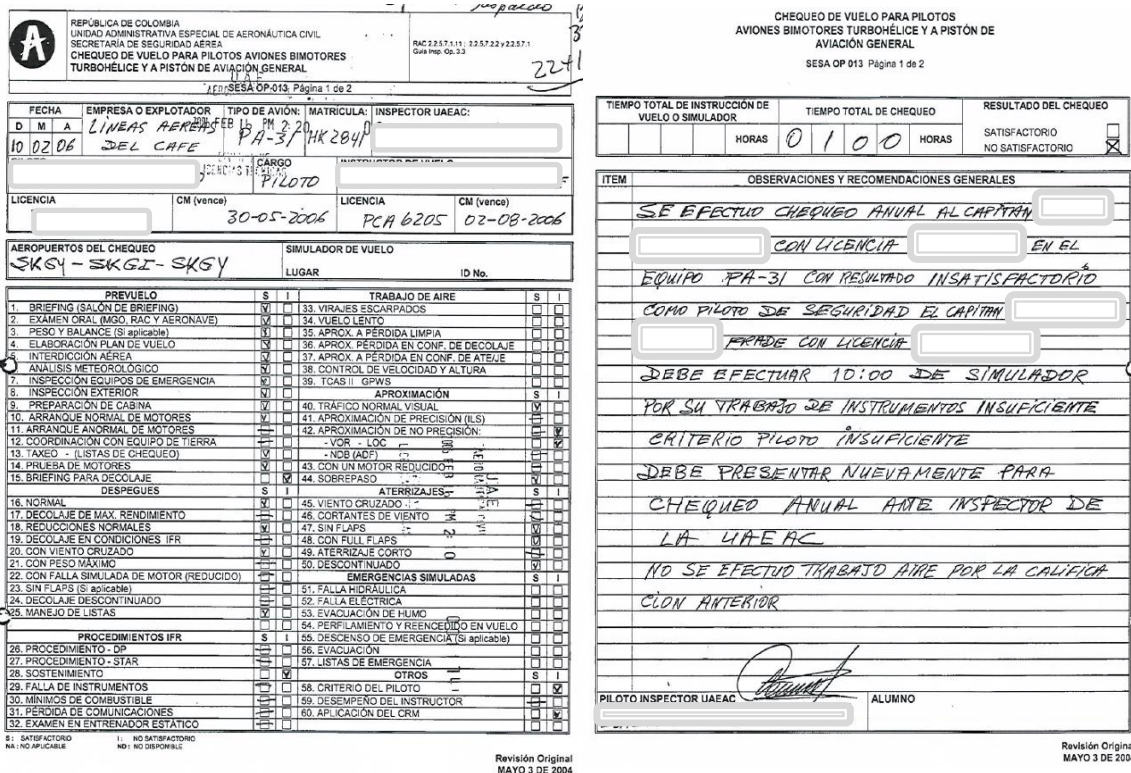 REPÚBLICA DE COLOMBIA
UNIDAD ADMINISTRATIVA ESPECIAL DE AERONÁUTICA CIVIL
SECRETARÍA DE SEGURIDAD AÉREA
CHEQUEO DE VUELO PARA PILOTOS AVIONES BIMOTORES
TURBOHÉLICE Y A PISTÓN DE AVIACIÓN GENERAL
SESA OP-013 Página 1 de 2
RAC 2.2.5.7.1.11 ; 2.2.5.7.2.2 y 2.2.57.1
Guía Insp. Op. 3.3
FECHA EMPRESA O EXPLOTADOR TIPO DE AVIÓN: MATRÍCULA: INSPECTOR UAEAC:
D M A LÍNEAS AEREAS PA-31 HK 2841
10 02 06 DEL CAFE
CARGO
PILOTO
LICENCIA CM (vence) LICENCIA CM (vence)
30-05-2006 PCA 6205 02-08-2006
AEROPUERTOS DEL CHEQUEO SIMULADOR DE VUELO
SKGY - SKGI - SKGY
LUGAR ID No.
PREVUELO S I
1. BRIEFING (SALÓN DE BRIEFING)
2. EXÁMEN ORAL (MGO, RAC Y AERONAVE)
3. PESO Y BALANCE (Si aplicable)
4. ELABORACIÓN PLAN DE VUELO
INTERDICCIÓN AÉREA
ANÁLISIS METEOROLÓGICO
7. INSPECCIÓN EQUIPOS DE EMERGENCIA
8. INSPECCIÓN EXTERIOR
9. PREPARACIÓN DE CABINA
10. ARRANQUE NORMAL DE MOTORES
11. ARRANQUE ANORMAL DE MOTORES
12. COORDINACIÓN CON EQUIPO DE TIERRA
13. TAXEO - (LISTAS DE CHEQUEO)
14. PRUEBA DE MOTORES
15. BRIEFING PARA DECOLAJE
DESPEGUES S I
16. NORMAL
17. DECOLAJE DE MAX. RENDIMIENTO
18. REDUCCIONES NORMALES
19. DECOLAJE EN CONDICIONES IFR
20. CON VIENTO CRUZADO
21. CON PESO MÁXIMO
22. CON FALLA SIMULADA DE MOTOR (REDUCIDO)
23. SIN FLAPS (Si aplicable)
24. DECOLAJE DESCONTINUADO
25. MANEJO DE LISTAS
PROCEDIMIENTOS IFR S I
26. PROCEDIMIENTO - DP
27. PROCEDIMIENTO - STAR
28. SOSTENIMIENTO
29. FALLA DE INSTRUMENTOS
30. MÍNIMOS DE COMBUSTIBLE
31. PÉRDIDA DE COMUNICACIONES
32. EXAMEN EN ENTRENADOR ESTÁTICO
TRABAJO DE AIRE S I
33. VIRAJES ESCARPADOS
34. VUELO LENTO
35. APROX. A PÉRDIDA LIMPIA
36. APROX. PÉRDIDA EN CONF. DE DECOLAJE
37. APROX. A PÉRDIDA EN CONF. DE ATE/JE
38. CONTROL DE VELOCIDAD Y ALTURA
39. TCAS II GPWS
APROXIMACIÓN S I
40. TRÁFICO NORMAL VISUAL
41. APROXIMACIÓN DE PRECISIÓN (ILS)
42. APROXIMACIÓN DE NO PRECISIÓN:
- VOR - LOC
- NDB (ADF)
43. CON UN MOTOR REDUCIDO
44. SOBREPASO
ATERRIZAJES S I
45. VIENTO CRUZADO
46. CORTANTES DE VIENTO
47. SIN FLAPS
48. CON FULL FLAPS
49. ATERRIZAJE CORTO
50. DESCONTINUADO
EMERGENCIAS SIMULADAS S I
51. FALLA HIDRÁULICA
52. FALLA ELÉCTRICA
53. EVACUACIÓN DE HUMO
54. PERFILAMIENTO Y REENCEDIDO EN VUELO
55. DESCENSO DE EMERGENCIA (Si aplicable)
56. EVACUACIÓN
57. LISTAS DE EMERGENCIA
OTROS S I
58. CRITERIO DEL PILOTO
59. DESEMPEÑO DEL INSTRUCTOR
60. APLICACIÓN DEL CRM
S : SATISFACTORIO I : NO SATISFACTORIO
NA : NO APLICABLE ND : NO DISPONIBLE
Revisión Original
MAYO 3 DE 2004
CHEQUEO DE VUELO PARA PILOTOS
AVIONES BIMOTORES TURBOHÉLICE Y A PISTÓN DE
AVIACIÓN GENERAL
SESA OP 013 Página 1 de 2
TIEMPO TOTAL DE INSTRUCCIÓN DE VUELO O SIMULADOR TIEMPO TOTAL DE CHEQUEO RESULTADO DEL CHEQUEO
HORAS 0 1 0 0 HORAS SATISFACTORIO
NO SATISFACTORIO
ITEM OBSERVACIONES Y RECOMENDACIONES GENERALES
SE EFECTUO CHEQUEO ANUAL AL CAPITAN
CON LICENCIA EN EL
EQUIPO PA-31 CON RESULTADO INSATISFACTORIO
COMO PILOTO DE SEGURIDAD EL CAPITAN
FRADE CON LICENCIA
DEBE EFECTUAR 10:00 DE SIMULADOR
POR SU TRABAJO DE INSTRUMENTOS INSUFICIENTE
CRITERIO PILOTO INSUFICIENTE
DEBE PRESENTAR NUEVAMENTE PARA
CHEQUEO ANUAL ANTE INSPECTOR DE
LA UAEAC
NO SE EFECTUO TRABAJO AIRE POR LA CALIFICA
CION ANTERIOR
PILOTO INSPECTOR UAEAC ALUMNO
Revisión Origina
MAYO 3 DE 200